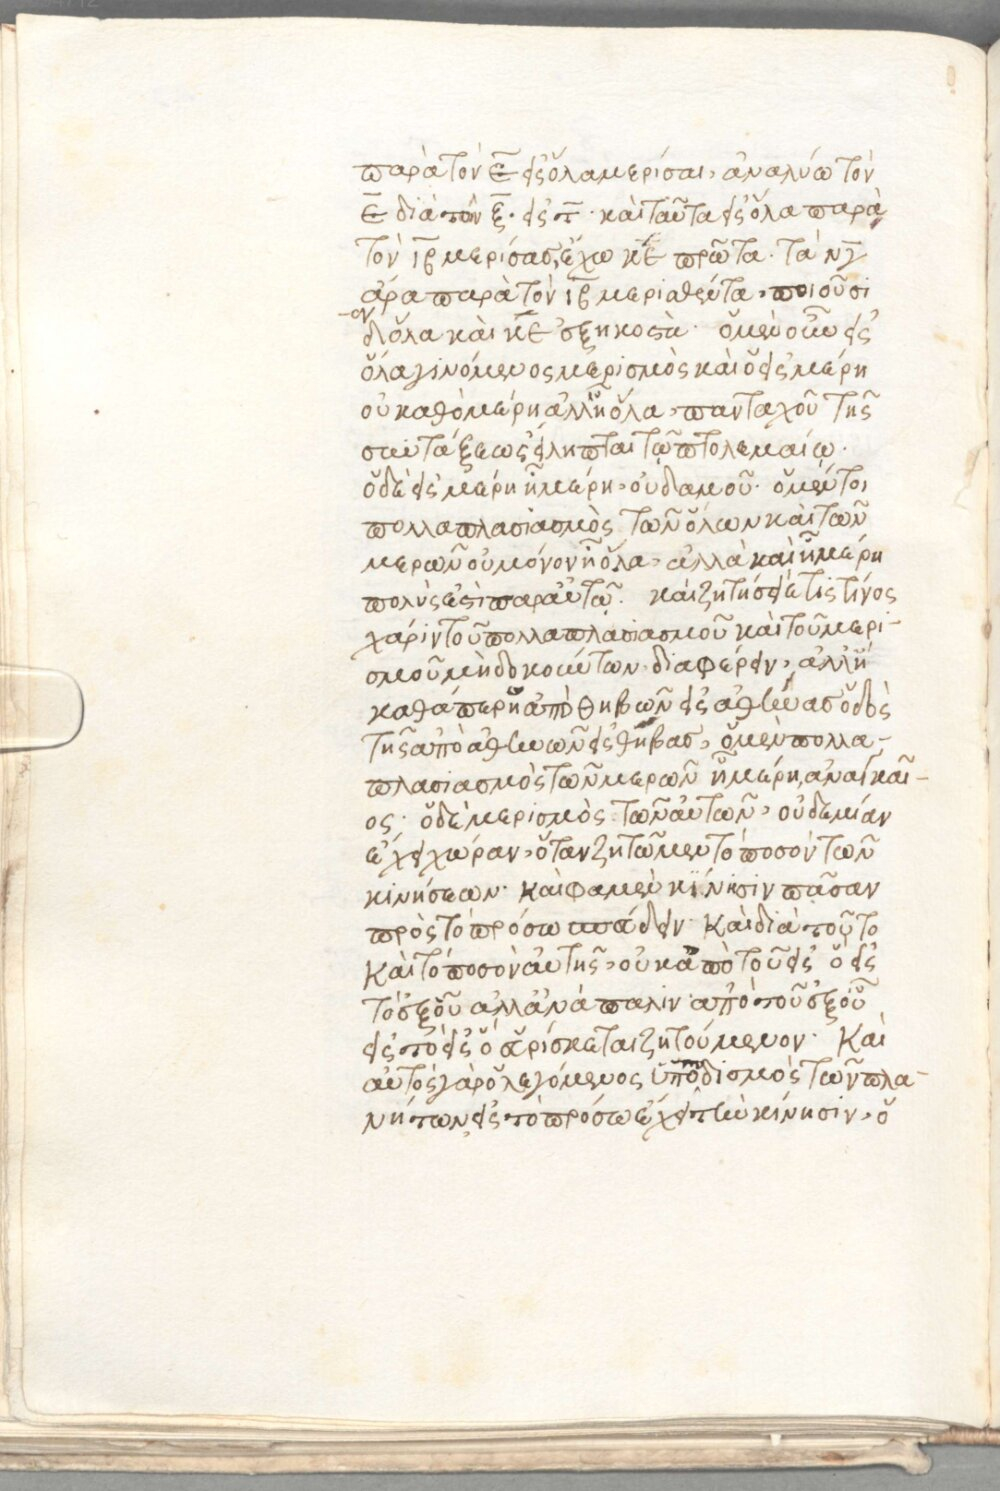 παρὰ τὸν ε̅ εἰς ὅλα μερίσαι, ἀναλύω τὸν
ε̅ διὰ τὸν ξ̅· εἰς τ̅· καὶ ταῦτα εἰς ὅλα παρὰ
τὸν ιβ̅ μερίσας, ἔχω κε̅ πρῶτα· τὰ
ἄρα παρὰ τὸν ιβ̅ μερισθέντα, ποιοῦσι
ὅλα καὶ κε̅ ἑξηκοστὰ· ὁ μὲν οὖν εἰς
ὅλα γινόμενος μερισμὸς καὶ ὁ εἰς μέρη
οὐ καθὸ μέρη ἀλλ' ᾗ ὅλα, πανταχοῦ τῆς
συντάξεως εἴληπται τῷ πτολεμαίῳ·
ὁ δὲ εἰς μέρη ᾗ μέρη, οὐδαμοῦ· ὁ μέντοι
πολλαπλασιασμὸς τῶν ὅλων καὶ τῶν
μερῶν οὐ μόνον ᾗ ὅλα, ἀλλὰ καὶ ᾗ μέρη
πολύς ἐστὶ παρ' αὐτῷ· καὶ ζητήσει τίς τίνος
χάριν τοῦ πολλαπλασιασμοῦ καὶ τοῦ μερι-
σμοῦ μὴ δοκούντων διαφέρειν, ἀλλ' ἢ
καθάπερ ἡ ἀπὸ θηβῶν εἰς ἀθήνας ὁδὸς
τῆς ἀπὸ ἀθηνῶν εἰς θήβας, ὁ μὲν πολλα-
πλασιασμὸς τῶν μερῶν ᾗ μέρη, ἀναγκαῖ-
ος· ὁ δὲ μερισμὸς τῶν αὐτῶν, οὐδεμίαν
ἔχει χώραν, ὅταν ζητῶμεν τὸ ποσὸν τῶν
κινήσεων· καὶ φαμεν κίνησιν πᾶσαν
πρὸς τὸ πρόσω σπεύδειν· καὶ διὰ τοῦτο
καὶ τὸ ποσὸν αὐτῆς, οὐκ ἀπὸ τοῦ εἰς ὃ εἰς
τὸ ἐξ οὗ ἀλλ' ἀνάπαλιν ἀπὸ τοῦ ἐξ οὗ
εἰς τὸ εἰς ὃ εὑρίσκεται ζητούμενον· καὶ
αὐτὸς γὰρ ὁ λεγόμενος ὑποποδισμὸς τῶν πλα-
νήτων, εἰς τὸ πρόσω ἔχει τὴν κίνησιν, ὁ